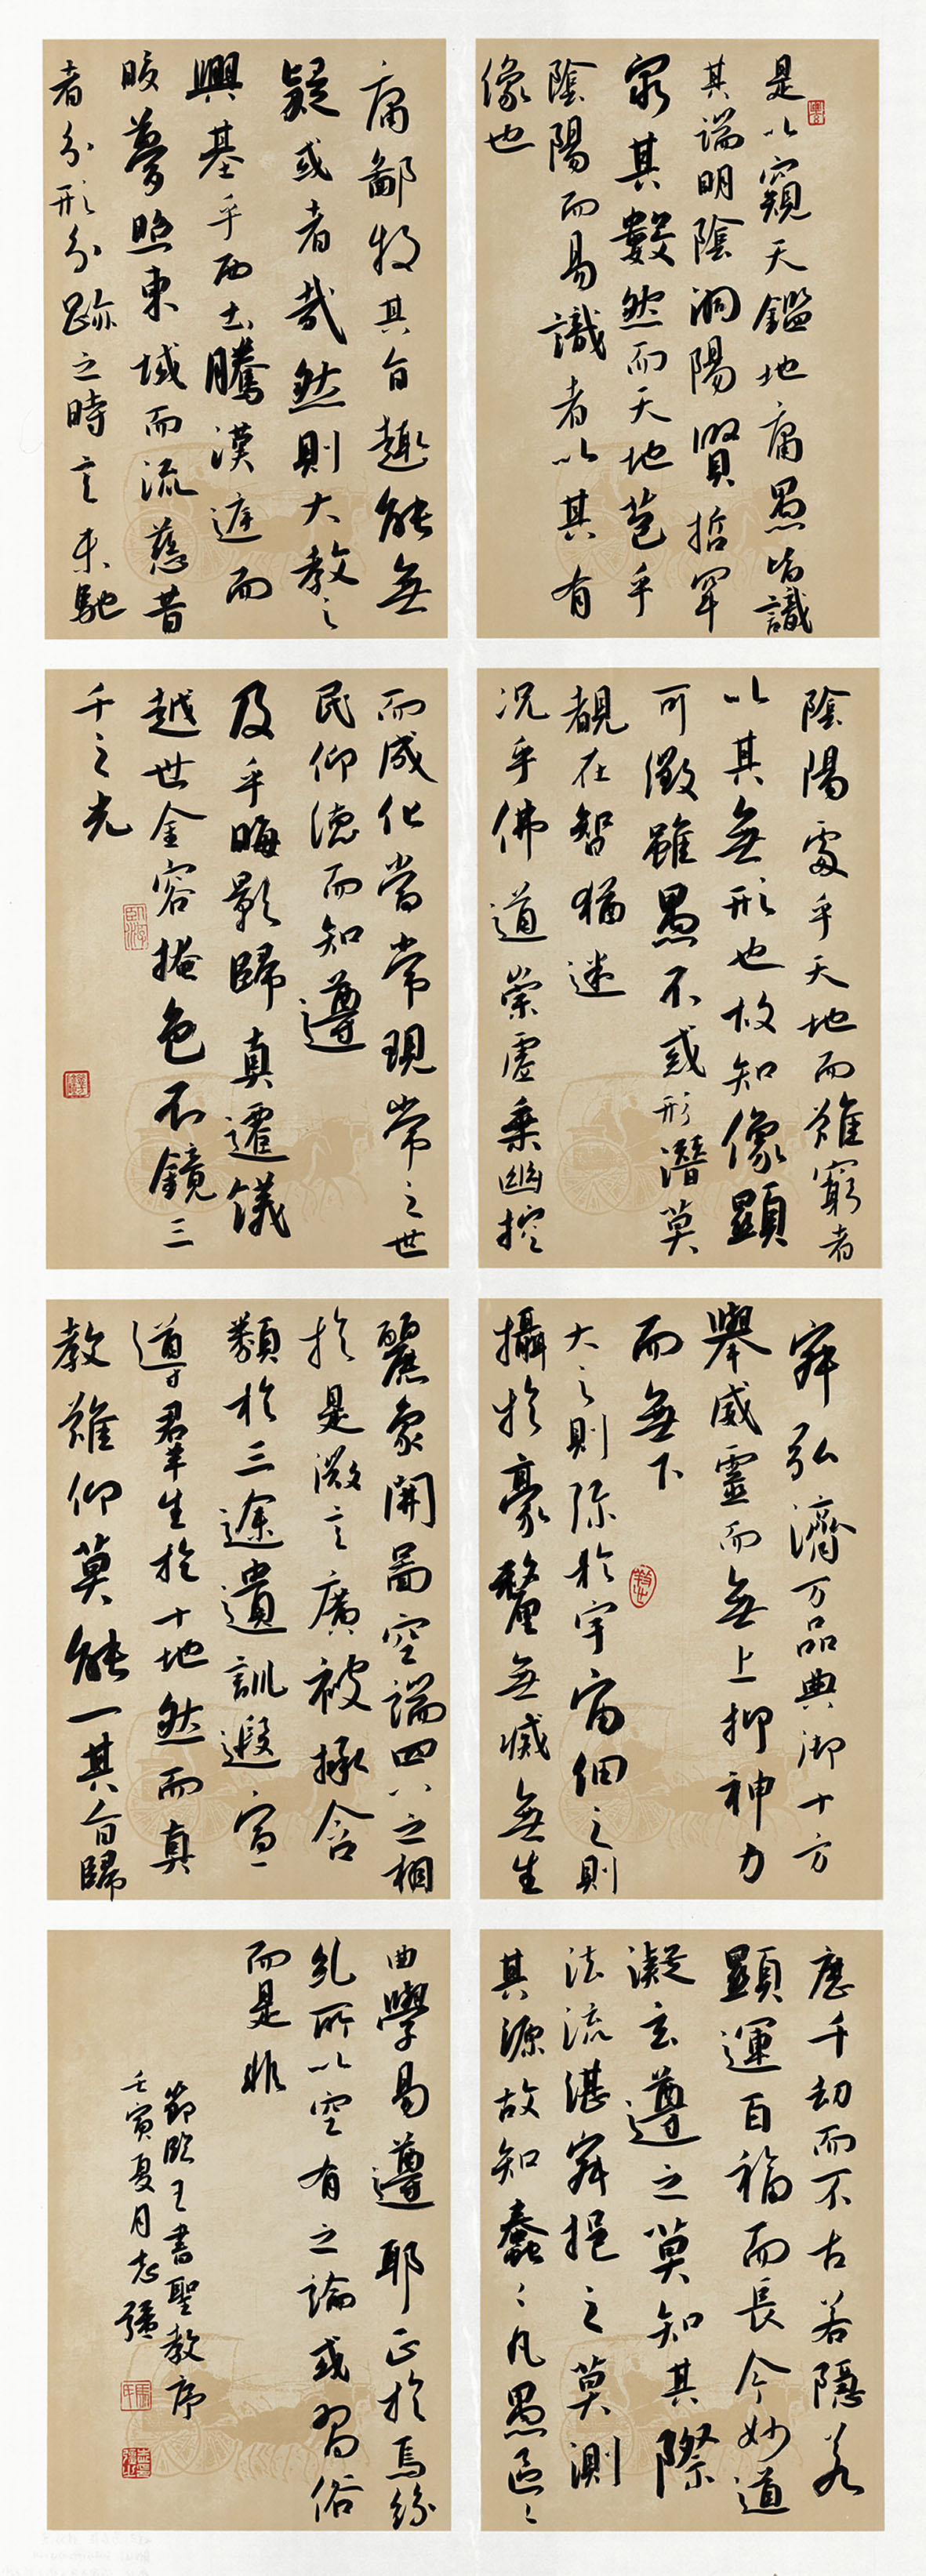 是以窺天鑑地庸愚皆識
其端明陰洞陽賢哲罕
窮其數然而天地苞乎
陰陽而易識者以其有
像也
陰陽處乎天地而難窮者
以其無形也故知像顯
可徵雖愚不惑形潛莫
覩在智猶迷
況乎佛道崇虛乘幽控
寂弘濟万品典御十方
舉威靈而無上抑神力
而無下
大之則彌於宇宙細之則
攝於豪釐無滅無生
歷千劫而不古若隱若
顯運百福而長今妙道
凝玄遵之莫知其際
法流湛寂挹之莫測
其源故知蠢々凡愚區々
庸鄙投其旨趣能無
疑或者哉然則大教之
興基乎西土騰漢庭而
皎夢照東域而流慈昔
者分形分跡之時言未馳
而成化當常現常之世
民仰德而知遵
及乎晦影歸真遷儀
越世金容掩色不鏡三
千之光
麗象開圖空端四八之相
於是微言廣被拯含
類於三途遺訓遐宣
導群生於十地然而真
教難仰莫能一其旨歸
曲學易遵耶正於焉紛
糺所以空有之論或習俗
而是非
節臨王書聖教序
壬寅夏月志強